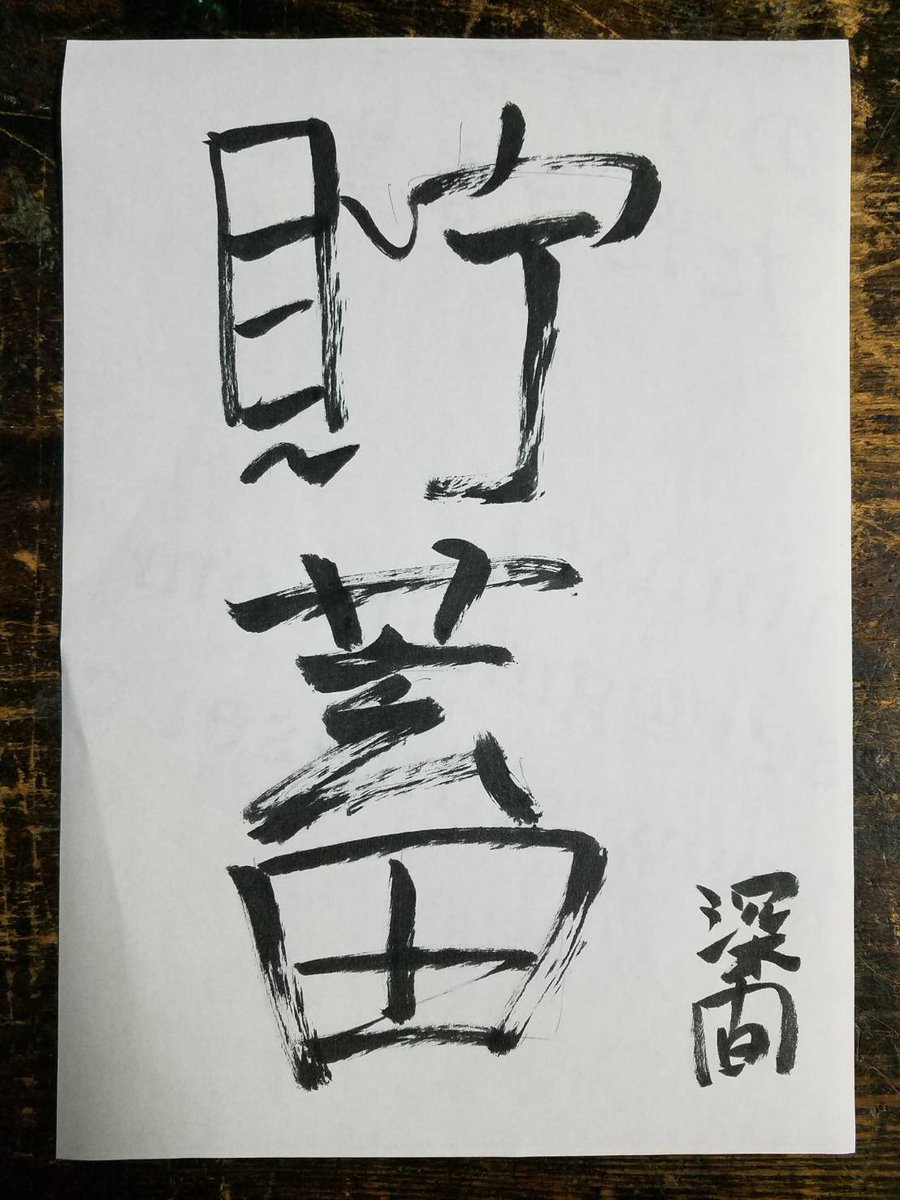 貯蓄
深間